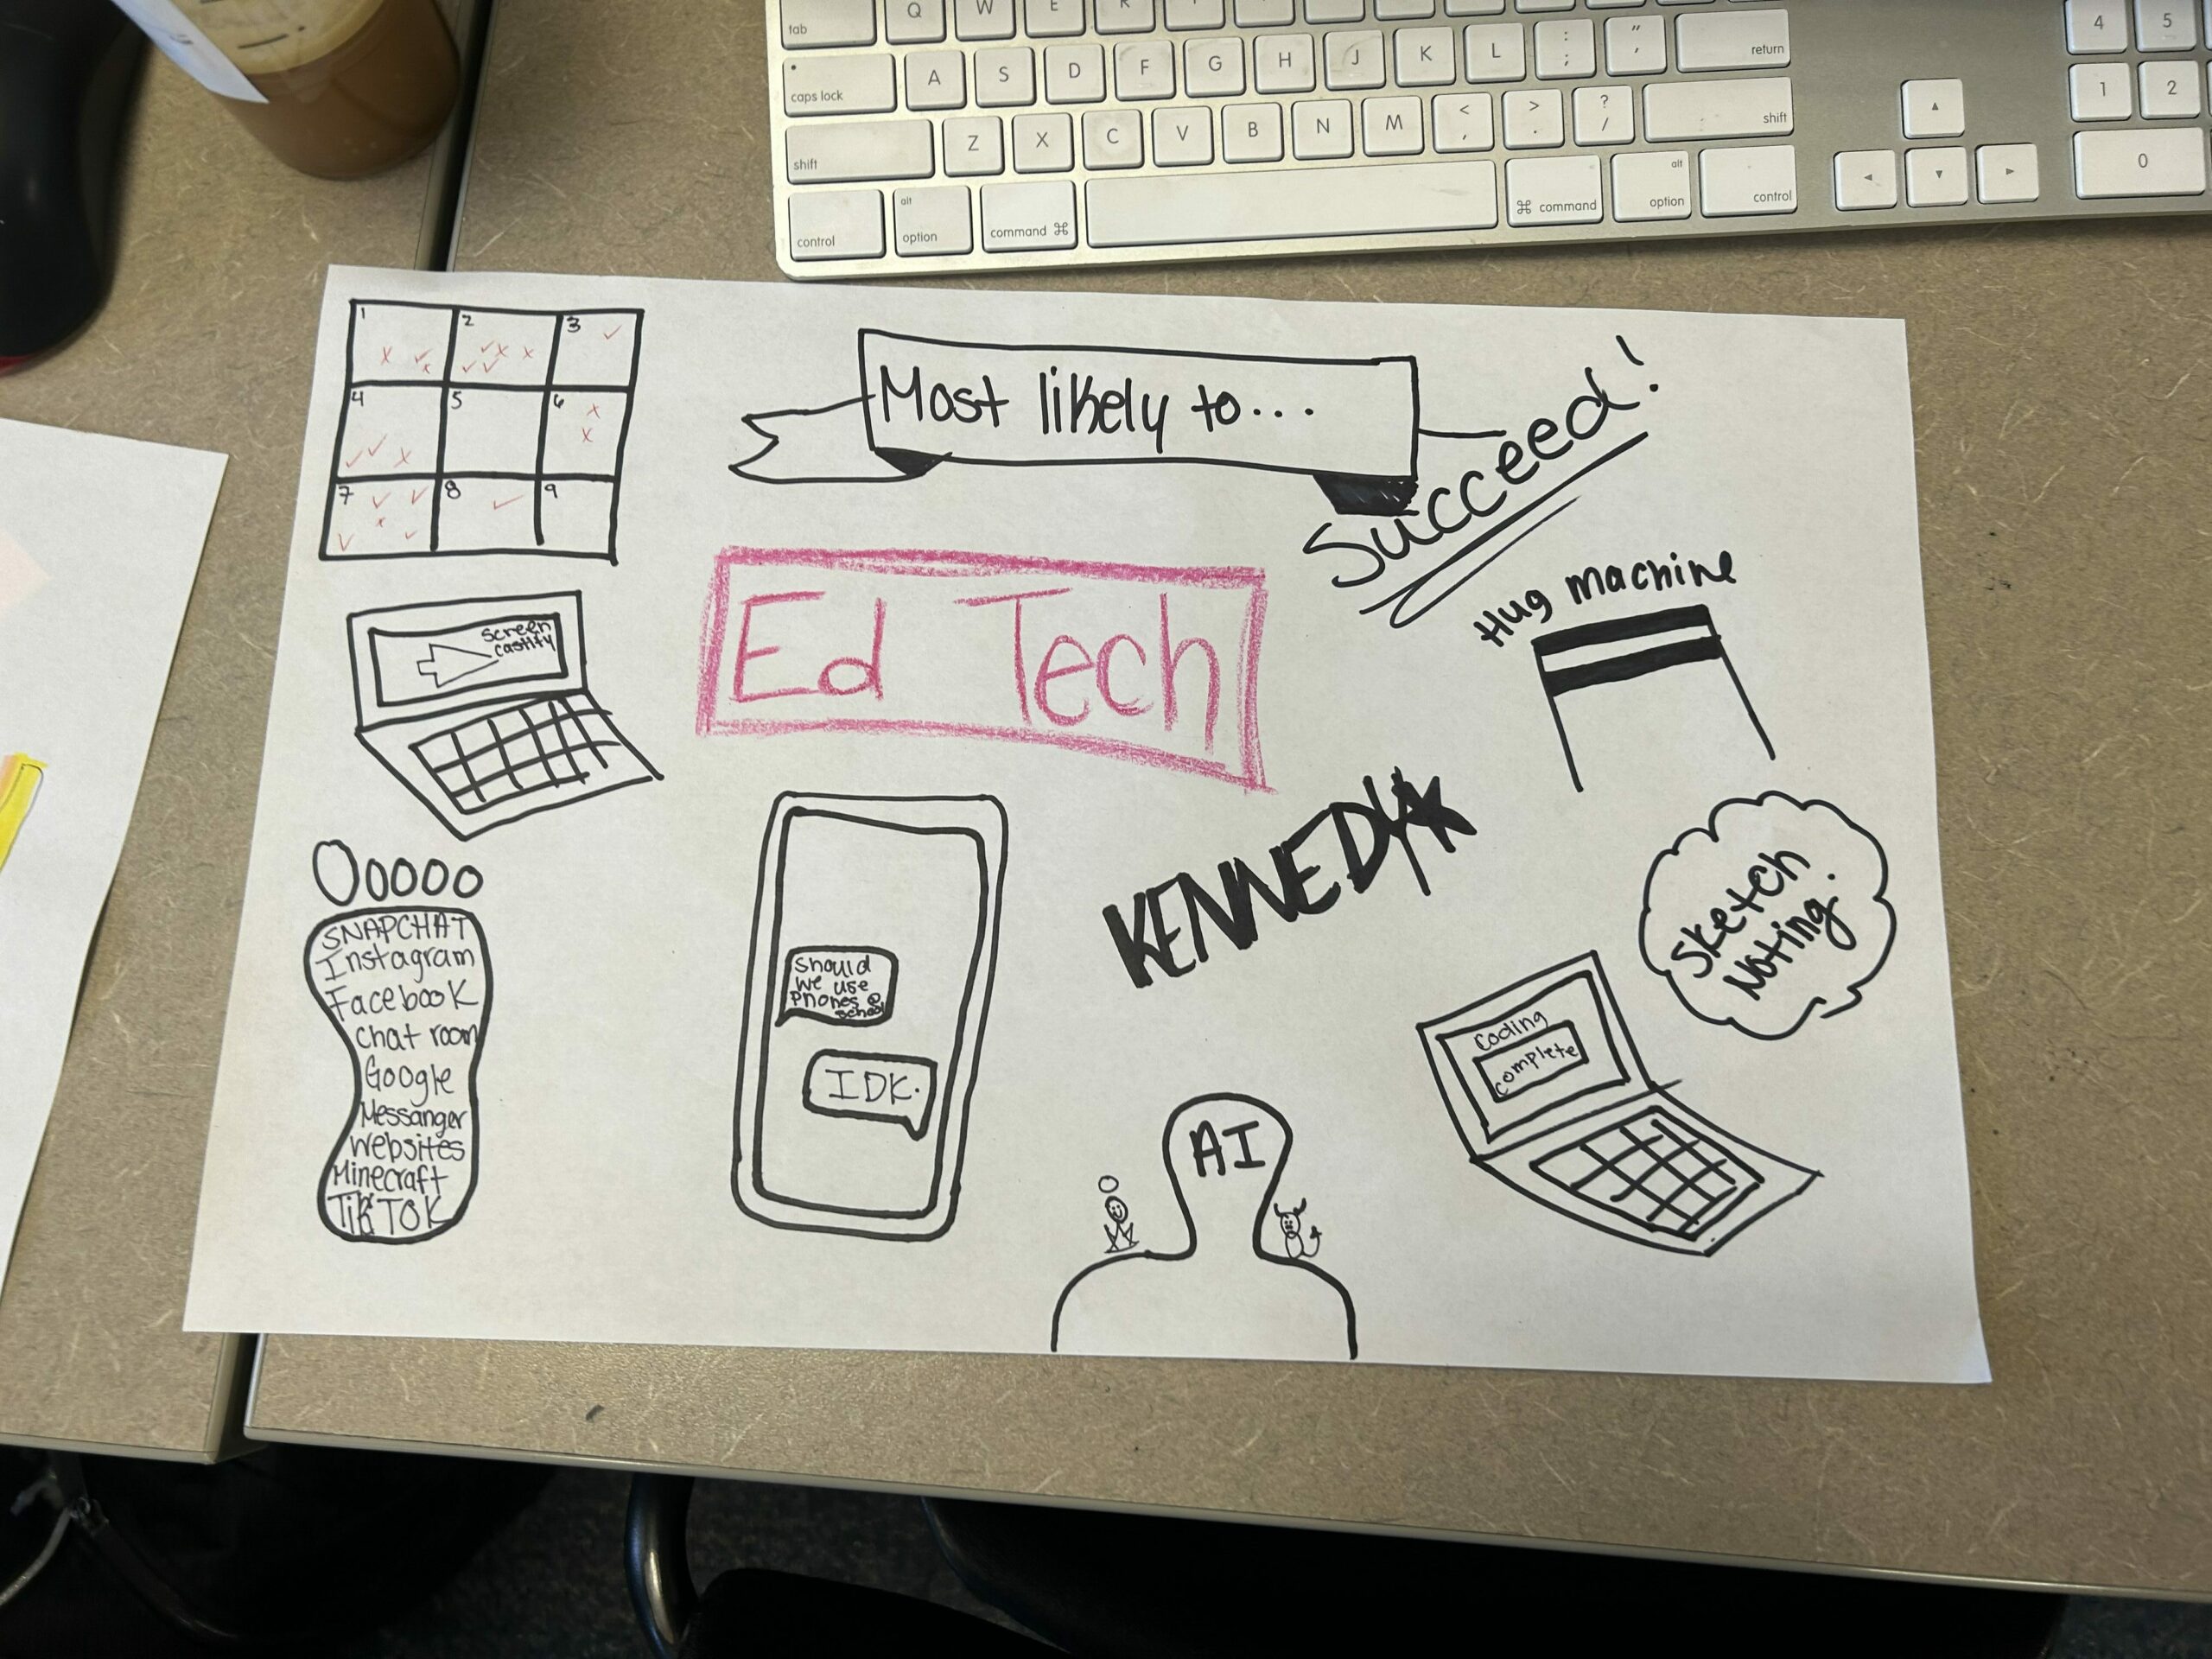 tab
Q W E R
caps lock
A S D F G H J K L : ; " ' return
shift
Z X C V B N M < , > . ? / shift
control
alt option
command ⌘
⌘ command
alt option
control
4 5
1 2
0
1 2 3
4 5 6
7 8 9
Most likely to...
Succeed!
Ed Tech
Hug machine
screen
castify
KENNEDY
Sketch
Noting.
SNAPCHAT
Instagram
Facebook
chat room
Google
Messanger
Websites
Minecraft
TikTOK
should
we use
phones @
school
IDK.
AI
coding
complete